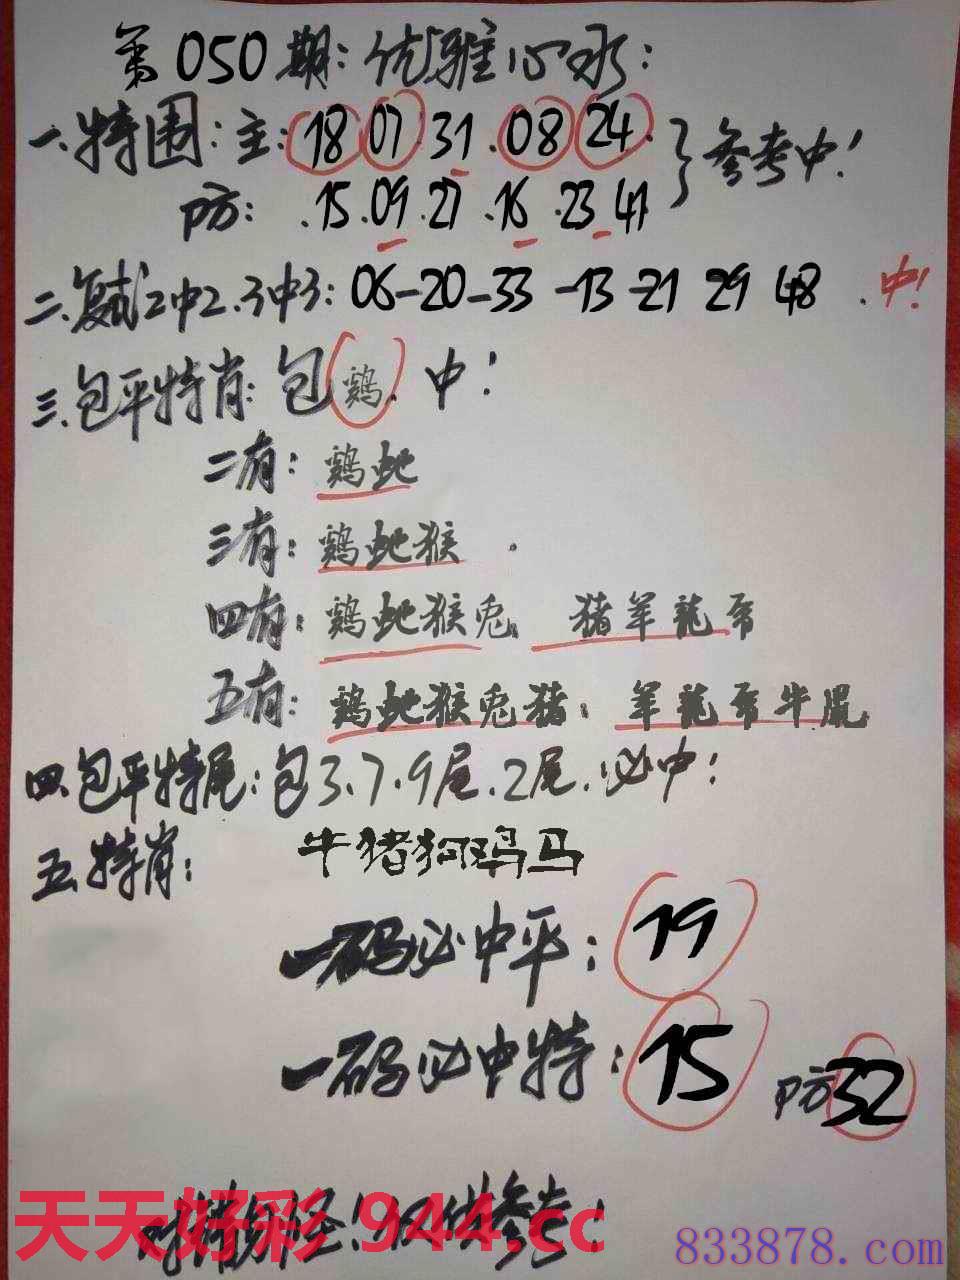 第050期:优雅心水:
一.特围:主:18 07 31.08 24. 参考中!
防: .15.09.27.16.23 41
二.复试2中2.3中3:06-20-33-13-21 29 48.中!
三.包平特肖:包鸡.中!
二有:鸡蛇
三有:鸡蛇猴.
四有:鸡蛇猴兔 猪羊龍虎
五有:鸡蛇猴兔猪: 羊龍虎牛鼠
四.包平特尾:包3.7.9尾.2尾.必中:
五.特肖: 牛猪狗鸡马
一码必中平:19
一码必中特:15 防32
天天好彩 944.cc
仅供参考:
833878.com